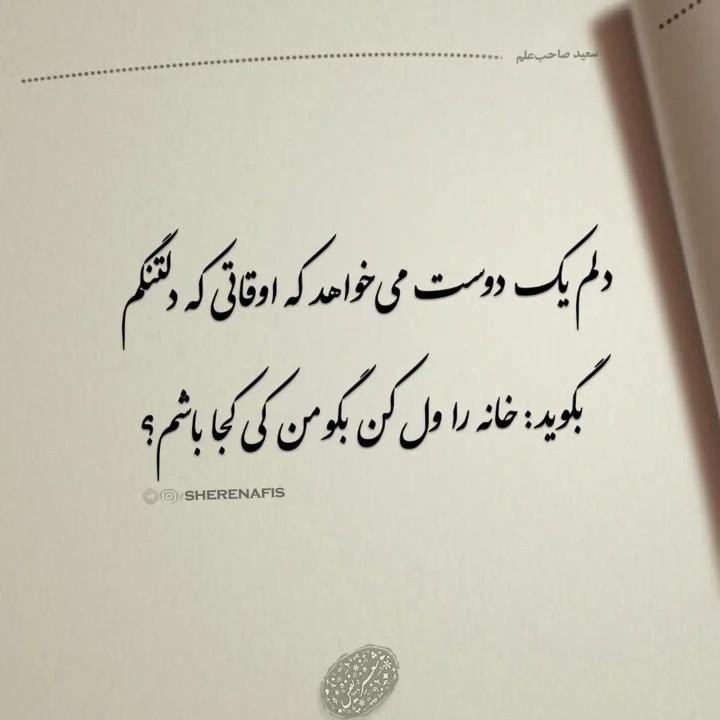 سعید صاحب‌علم
دلم یک دوست می‌خواهد که اوقاتی که دلتنگم
بگوید: خانه را ول کن بگو من کی کجا باشم؟
/SHERENAFIS